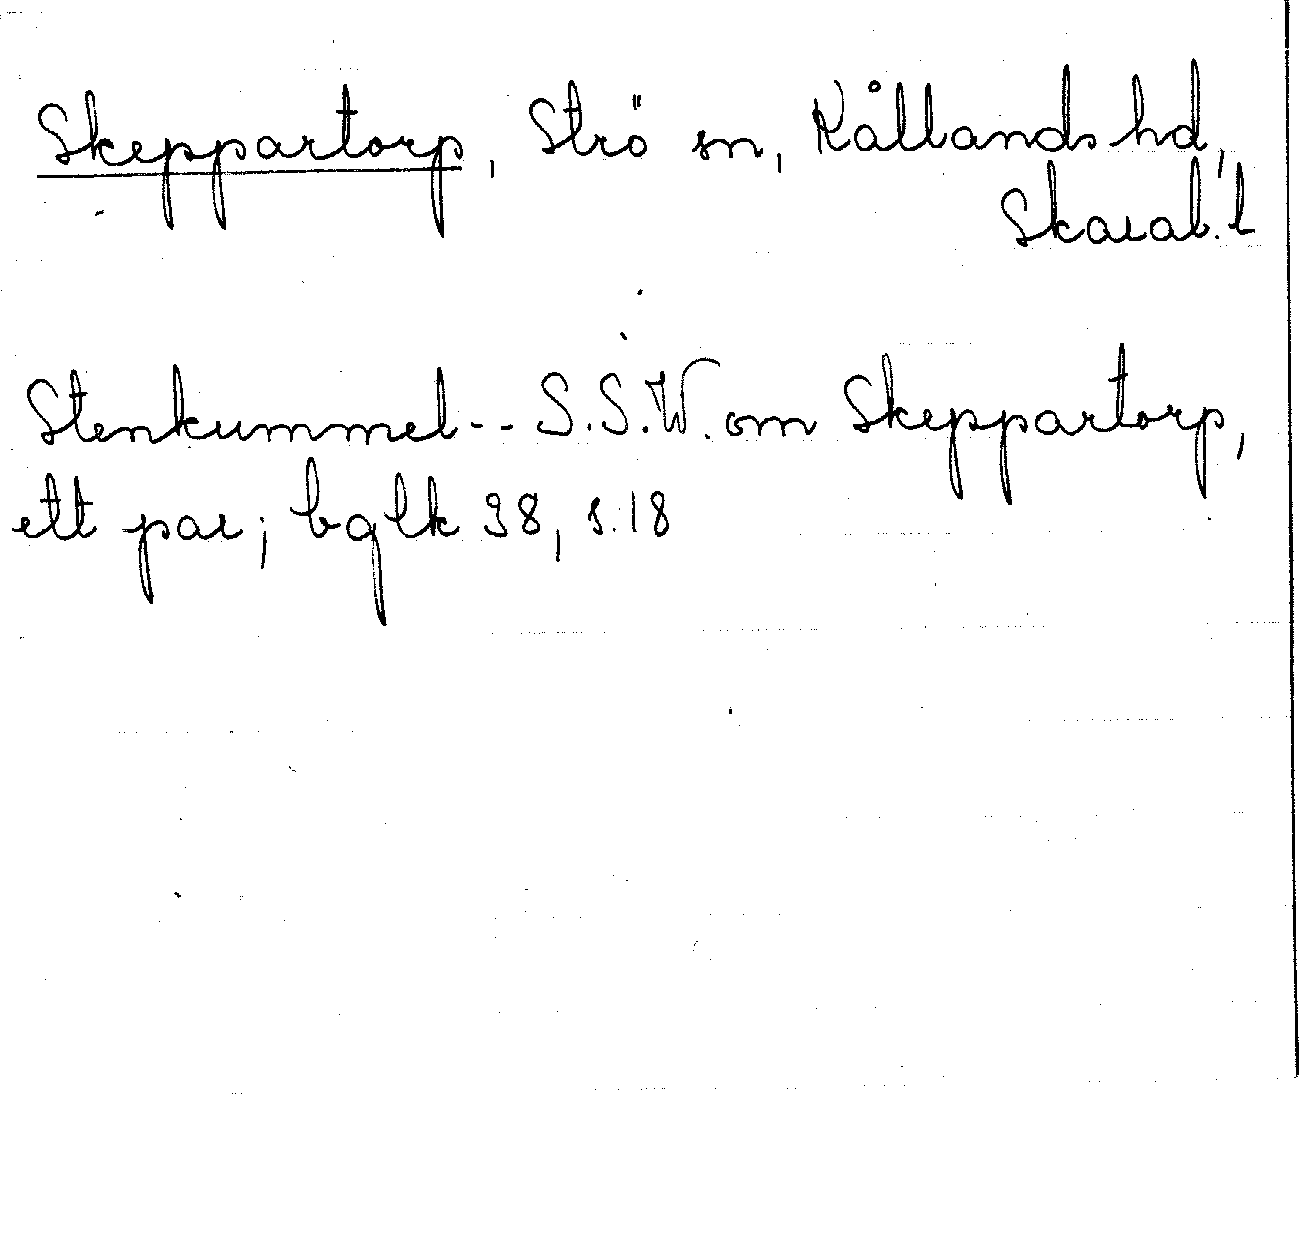 Skeppartorp, Strö sn, Kållands hd,
Skarab. l
Stenkummel -- S.S.W. om Skeppartorp,
ett par; bglk 38, s. 18